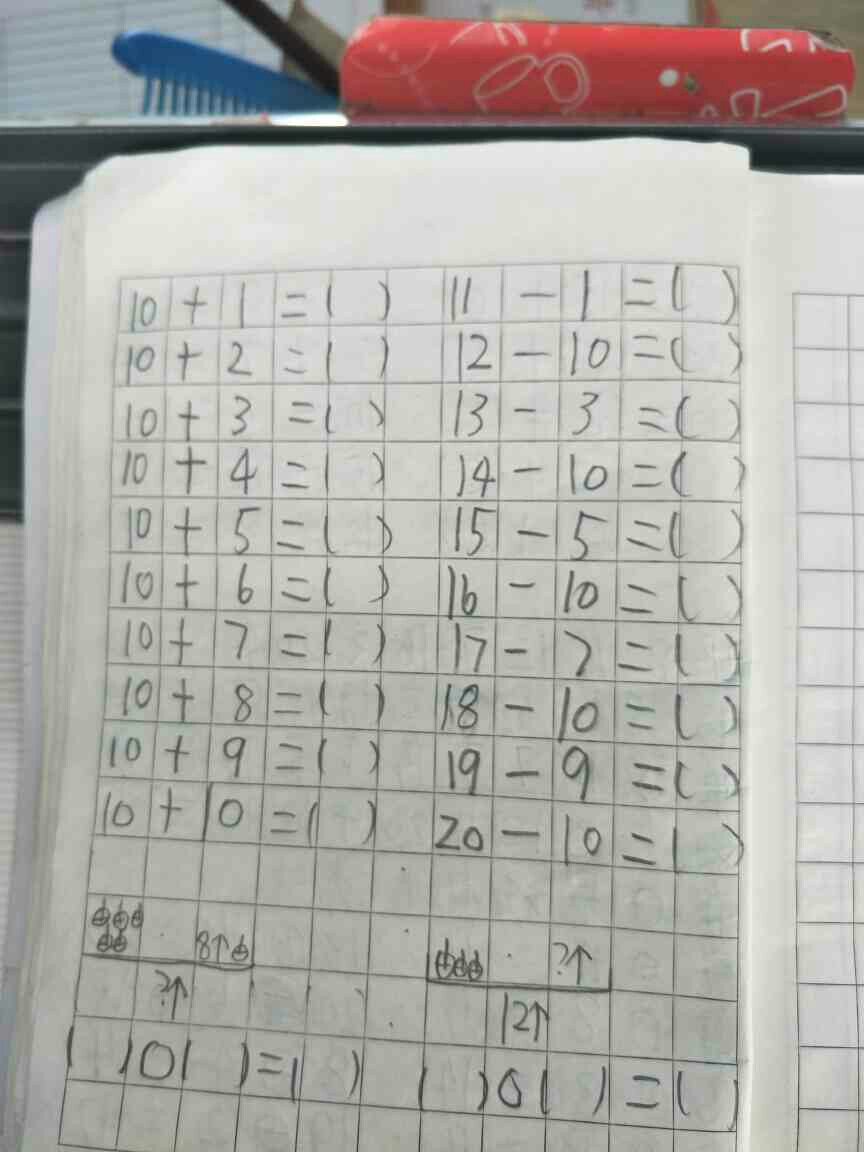 10 + 1 = ( ) 11 - 1 = ( )
10 + 2 = ( ) 12 - 10 = ( )
10 + 3 = ( ) 13 - 3 = ( )
10 + 4 = ( ) 14 - 10 = ( )
10 + 5 = ( ) 15 - 5 = ( )
10 + 6 = ( ) 16 - 10 = ( )
10 + 7 = ( ) 17 - 7 = ( )
10 + 8 = ( ) 18 - 10 = ( )
10 + 9 = ( ) 19 - 9 = ( )
10 + 10 = ( ) 20 - 10 = ( )
8个 ?个
?个 12个
( )○( )=( ) ( )○( )=( )